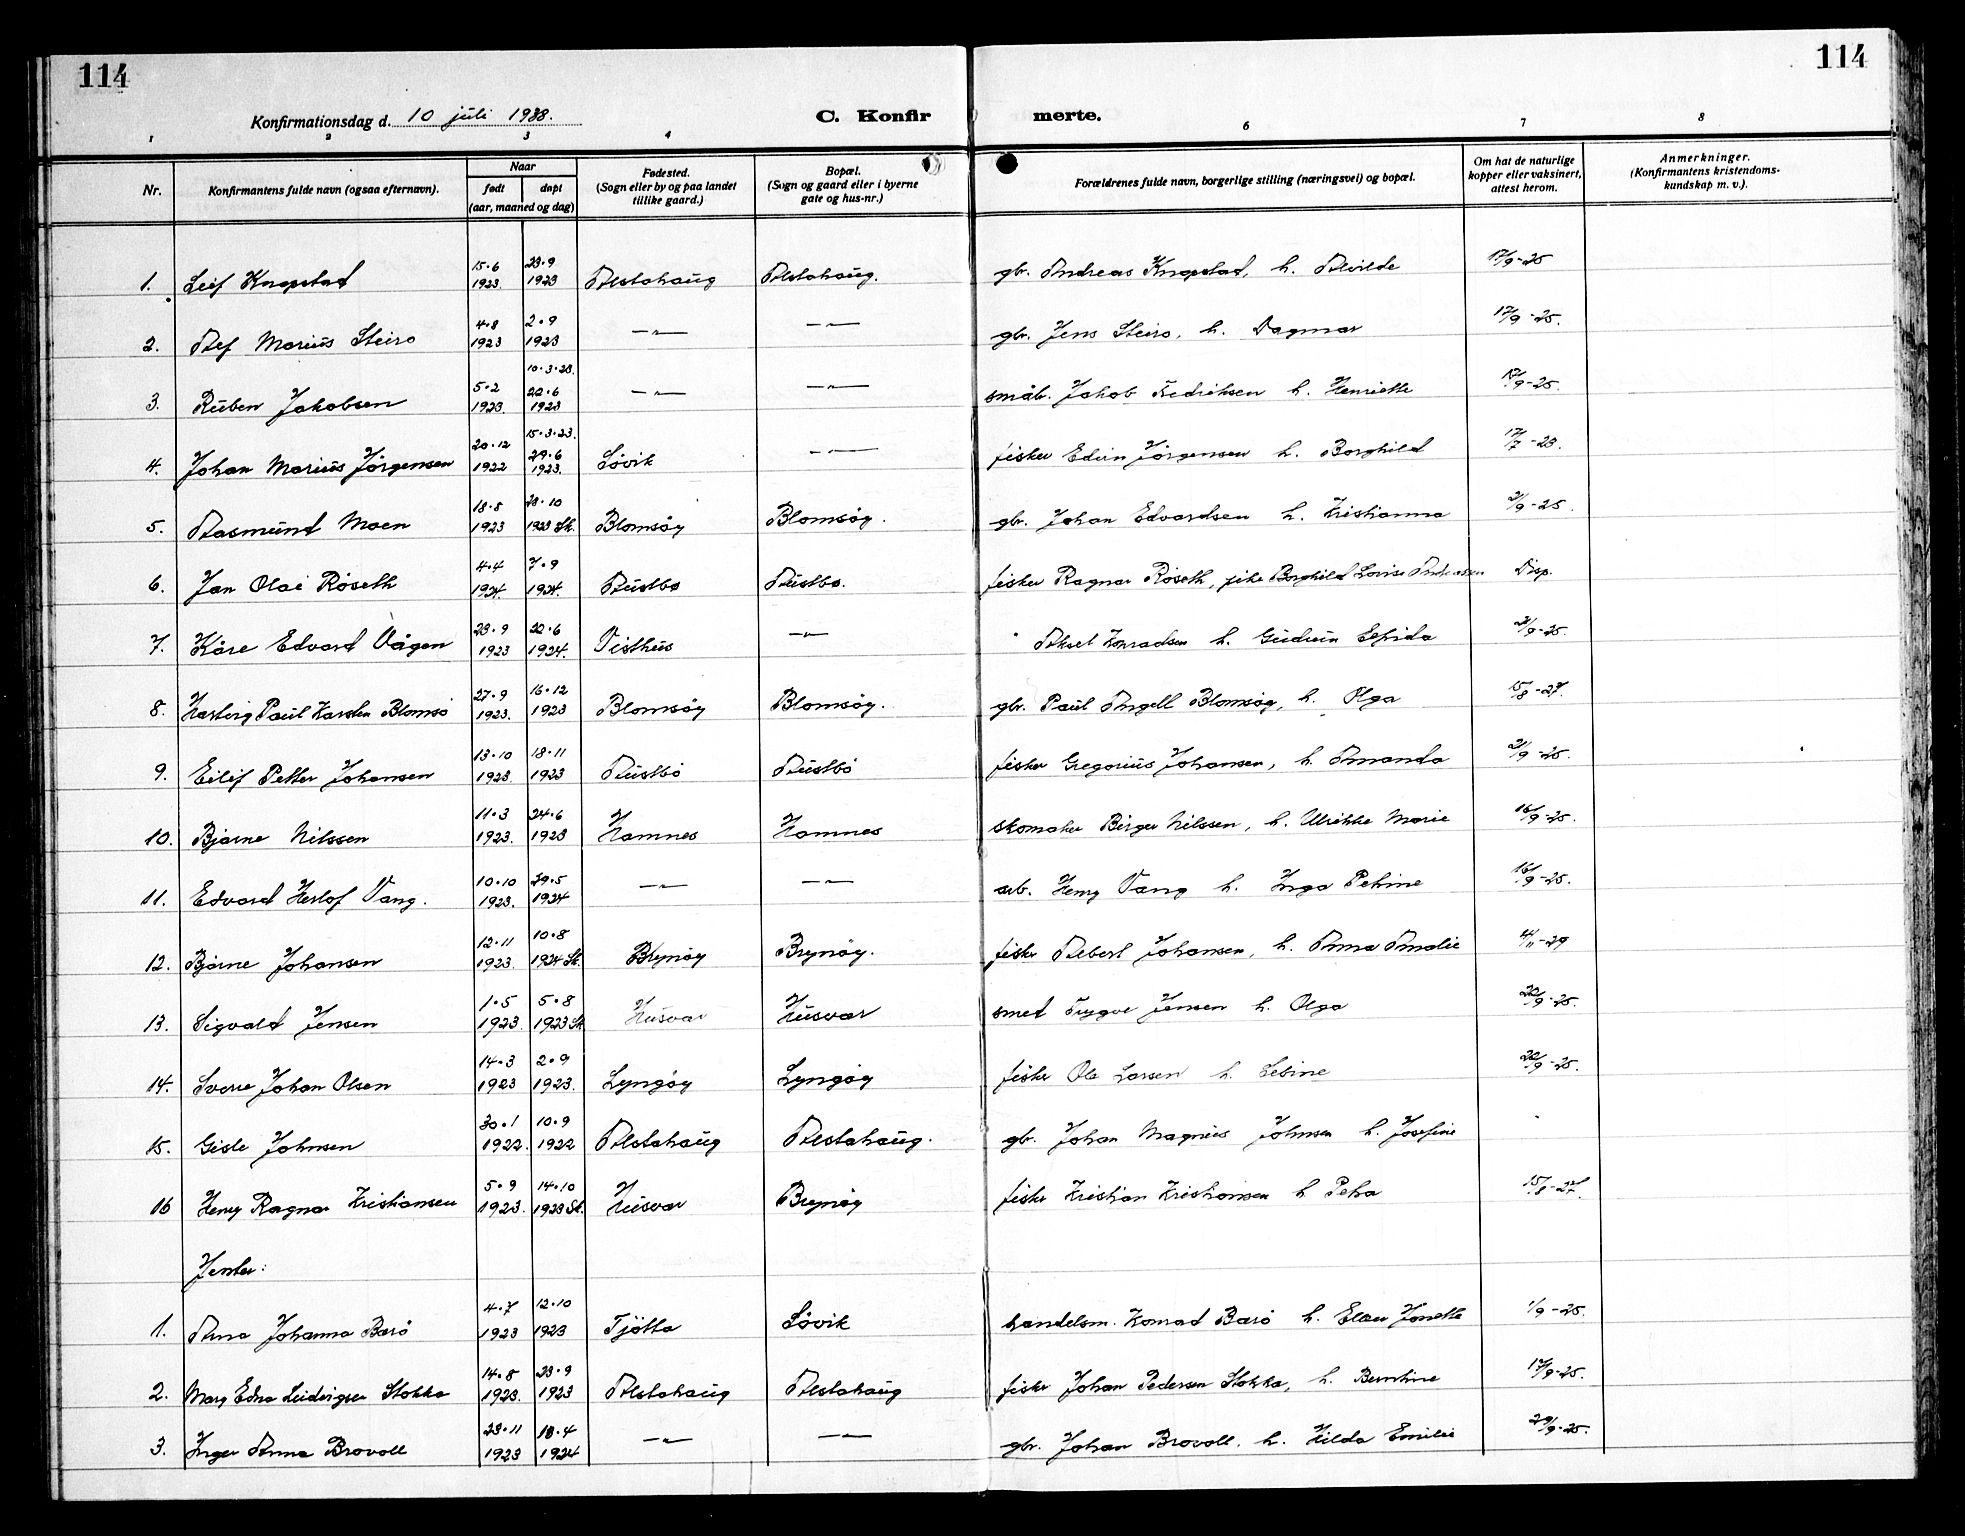 114
114
Konfirmationsdag d. 10 juli 1938.
C. Konfir
merte.
1 2 3 4 6 7 8
Nr.
Konfirmantens fulde navn (ogsaa efternavn).
Naar
født døpt
(aar, maaned og dag)
Fødested.
(Sogn eller by og paa landet
tillike gaard.)
Bopæl.
(Sogn og gaard eller i byerne
gate og hus-nr.)
Forældrenes fulde navn, borgerlige stilling (næringsvei) og bopæl.
Om hat de naturlige
kopper eller vaksinert,
attest herom.
Anmerkninger.
(Konfirmantens kristendoms-
kundskap m. v.).
1. Leif Knapstad 15.6 1923. 23.9 1923 Alstahaug Alstahaug. gbr. Andreas Knapstad, h. Alvilde 17/9-25
2. Alf Marius Steiro 4.8 1923 2.9 1923 —"— —"— gbr. Jens Steiro, h. Dagmar 17/9-25.
3. Ruben Jakobsen 5.2 1923. 10.3.23. 22.6 1923 —"— —"— småbr. Jakob Fredriksen h. Henriette 17/9-25.
4. Johan Marius Jörgensen 20.12 1922 15.3.23. 29.6 1923. Sövik —"— fisker Edvin Jörgensen h. Borghild 17/7-23.
5. Aasmund Moen 18.8 1923 28.10 1923 Sk. Blomsöy Blomsöy. gbr. Johan Edvardsen h. Kristianna 2/9-25.
6. Jan Olai Röseth 4.4 1924. 7.9 1924. Austbø Austbø. fisker Ragnar Röseth, pike Borghild Lovise Andreassen Disp.
7. Kåre Edvard Vågen 23.9 1923 22.6 1924. Visthus —"— " Aksel Konradsen h. Gudrun Elfrida 2/9-25.
8. Hartvig Paul Karsten Blomsö 27.9 1923. 16.12 1923 Blomsöy Blomsöy. gbr. Paul Angell Blomsöy, h. Olga 15/8-27.
9. Eilif Petter Johansen 13.10 1923. 18.11 1923 Austbö Austbö fisker Gregorius Johansen, h. Amanda 2/9-25.
10. Bjarne Nilssen 11.3 1923. 24.6 1923 Hamnes Hamnes skomaker Birger Nilssen, h. Ulrikke Marie 16/9-25.
11. Edvard Herlof Vang. 10.10 1923. 29.5 1924 —"— —"— arb. Henry Vang h. Inga Petrine 16/9-25.
12. Bjarne Johansen 12.11 1923. 10.8 1924 Sk. Brynöy Brynöy. fisker Albert Johansen, h. Anna Amalie 4/11-29
13. Sigvald Jensen 1.5 1923. 5.8 1923 Sk. Husvær Husvær smed Trygve Jensen h. Olga 22/9-25.
14. Sverre Johan Olsen 14.3 1923 2.9 1923. Lyngöy Lyngöy fisker Ole Larsen h. Sebine 22/9-25.
15. Gisle Johnsen 30.1 1922. 10.9 1922 Alstahaug Alstahaug. gbr. Johan Magnus Johnsen h. Josefine "
16 Henry Ragnar Kristiansen 5.9 1923. 14.10 1923 Sk. Husvær Brynöy fisker Kristian Kristiansen h Petra 15/8-27.
Jenter:
1. Anna Johanna Barö 4.7 1923 12.10 1923 Tjötta Sövik handelsm. Konrad Barö h. Elen Jonette 1/9-25.
2. Mary Edna Ludvigsen Stokka 14.8 1923. 23.9 1923 Alstahaug Alstahaug fisker Johan Pedersen Stokka, h. Berntine 17/9-25.
3. Inger Anna Brovoll 23.11 1923 18.4 1924 —"— —"— gbr. Johan Brovoll, h. Hilda Emilie 29/9-25.